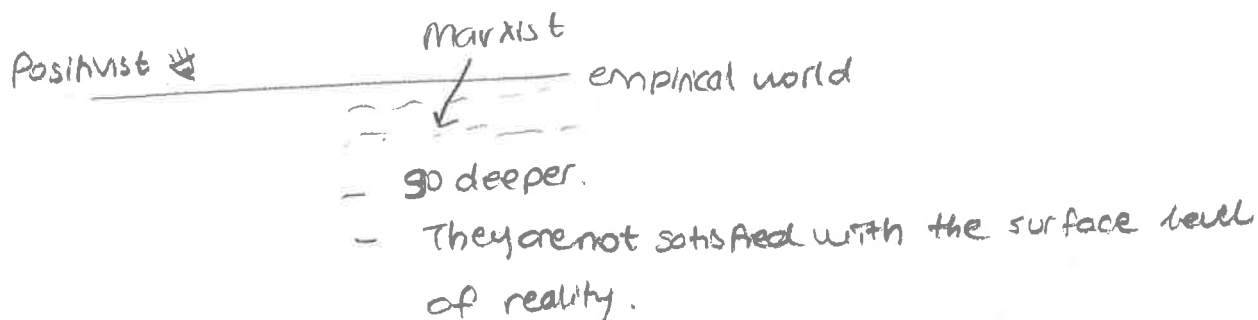 Marxist
Positivist
empirical world
- go deeper.
- They are not satisfied with the surface level
of reality.